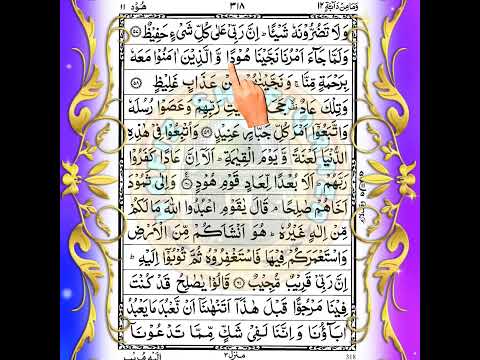 وَمَا مِنْ دَآبَّةٍ ١٢ ٣١٨ هُوْد ١١
وَلَا تَضُرُّوْنَهٗ شَيْـًٔا ؕ اِنَّ رَبِّىْ عَلٰى كُلِّ شَىْءٍ حَفِيْظٌ ﴿۵۷﴾
وَلَمَّا جَآءَ اَمْرُنَا نَجَّيْنَا هُوْدًا وَّ الَّذِيْنَ اٰمَنُوْا مَعَهٗ
بِرَحْمَةٍ مِّنَّا ۚ وَنَجَّيْنٰهُمْ مِّنْ عَذَابٍ غَلِيْظٍ ﴿۵۸﴾
وَتِلْكَ عَادٌ ۟ۙ جَحَدُوْا بِاٰيٰتِ رَبِّهِمْ وَعَصَوْا رُسُلَهٗ
وَاتَّبَعُوْۤا اَمْرَ كُلِّ جَبَّارٍ عَنِيْدٍ ﴿۵۹﴾ وَاُتْبِعُوْا فِىْ هٰذِهِ
الدُّنْيَا لَعْنَةً وَّ يَوْمَ الْقِيٰمَةِ ؕ اَلَاۤ اِنَّ عَادًا كَفَرُوْا
رَبَّهُمْ ؕ اَلَا بُعْدًا لِّعَادٍ قَوْمِ هُوْدٍ ﴿۶۰﴾ وَاِلٰى ثَمُوْدَ
اَخَاهُمْ صٰلِحًا ۘ قَالَ يٰقَوْمِ اعْبُدُوا اللّٰهَ مَا لَكُمْ
مِّنْ اِلٰهٍ غَيْرُهٗ ؕ هُوَ اَنْشَاَكُمْ مِّنَ الْاَرْضِ
وَاسْتَعْمَرَكُمْ فِيْهَا فَاسْتَغْفِرُوْهُ ثُمَّ تُوْبُوْۤا اِلَيْهِ ؕ
اِنَّ رَبِّىْ قَرِيْبٌ مُّجِيْبٌ ﴿۶۱﴾ قَالُوْا يٰصٰلِحُ قَدْ كُنْتَ
فِيْنَا مَرْجُوًّا قَبْلَ هٰذَاۤ اَتَنْهٰىنَاۤ اَنْ نَّعْبُدَ مَا يَعْبُدُ
اٰبَآؤُنَا وَاِنَّنَا لَفِىْ شَكٍّ مِّمَّا تَدْعُوْنَاۤ
منزل ٣ 318